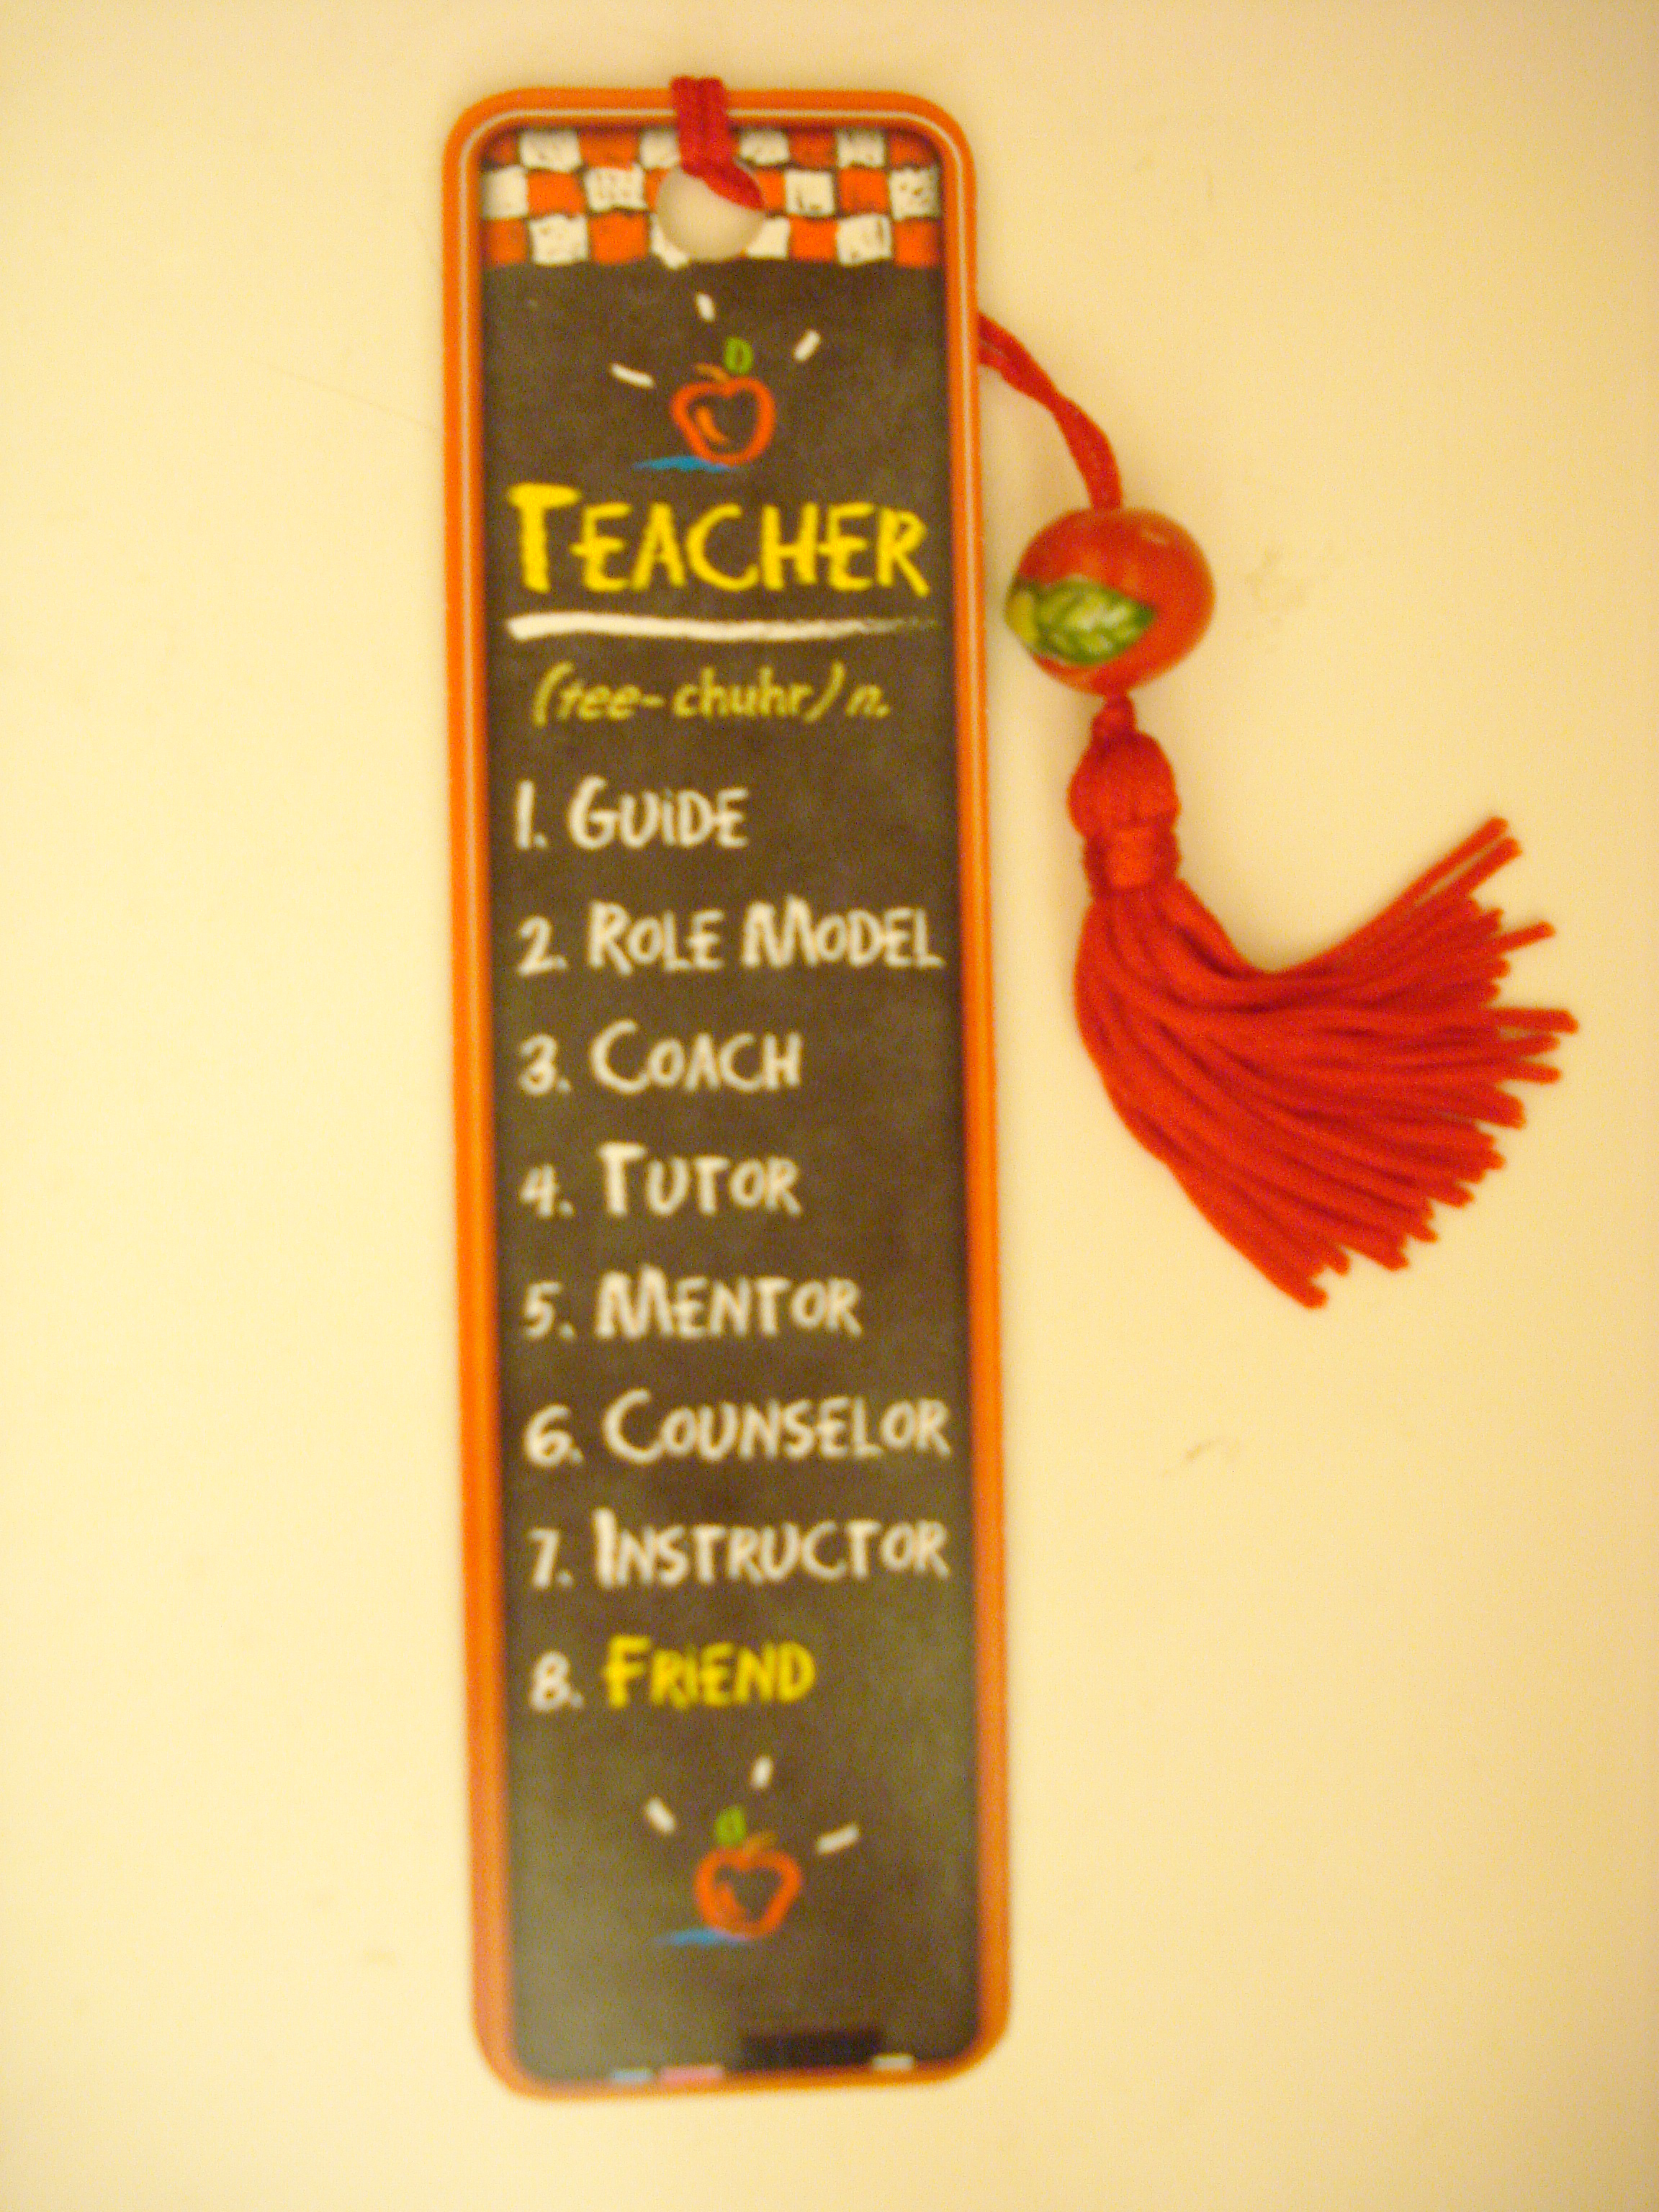 TEACHER
(tee-chuhr) n.
1. GUiDE
2. ROLE MODEL
3. COACH
4. TUTOR
5. MENTOR
6. COUNSELOR
7. INSTRUCTOR
8. FRiEND